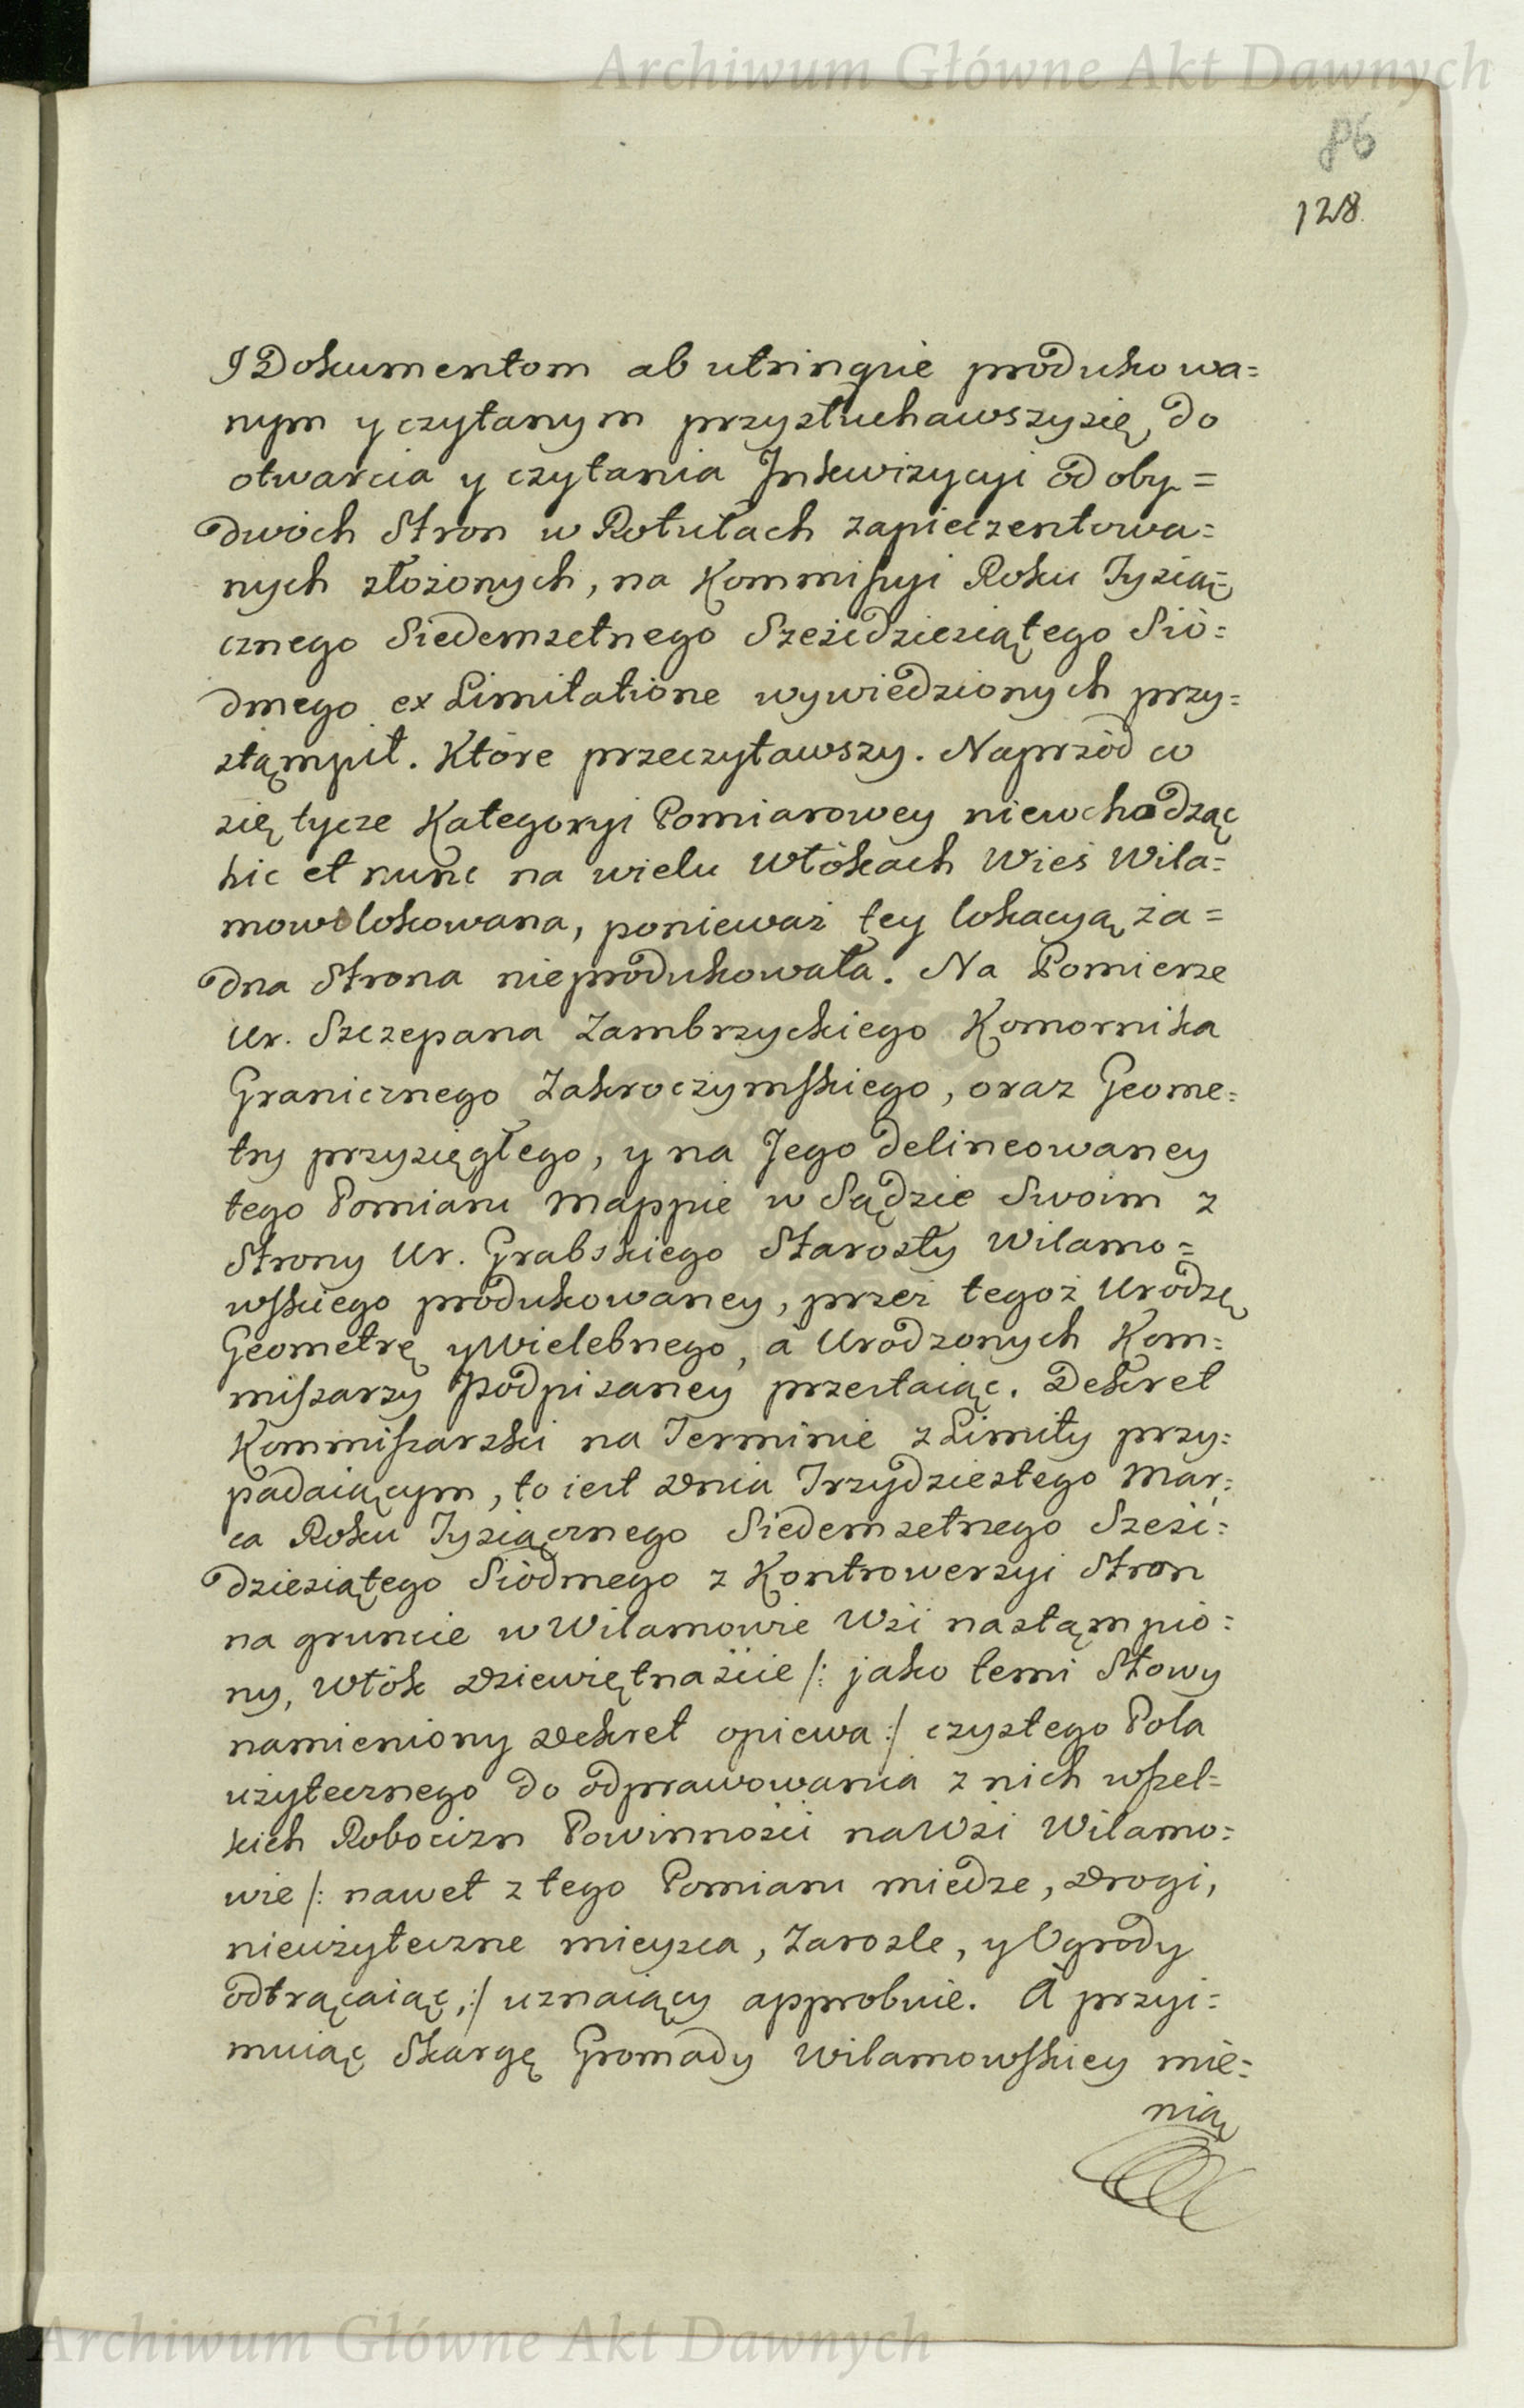 Archiwum Główne Akt Dawnych
86
128
I Dokumentom ab utrinque produkowa=
nym y czytanym przysłuchawszysię, do
otwarcia y czytania Inkwizycyi od oby=
dwóch Stron w Rotułach zapieczentowa=
nych złożonych, na Kommissyi Roku Tysią=
cznego Siedemsetnego Sześćdziesiątego Sió=
dmego ex Limitatione wywiedzionych przy=
stąmpił. Które przeczytawszy. Naprzód co
się tycze Kategoryi Pomiarowey niewchodząc
hic et nunc na wielu Włókach Wieś Wila=
mow lokowana, ponieważ tey lokacyą ża=
dna Strona nieprodukowała. Na Pomierze
Ur. Szczepana Zambrzyckiego Komornika
Granicznego Zakroczymskiego, oraz Geome=
try przysięgłego, y na Jego delineowaney
tego Pomiaru Mappie w Sądzie Swoim z
Strony Ur. Grabskiego Starosty Wilamo=
wskiego produkowaney, przez tegoż Urodze
Geometrę y Wielebnego, a Urodzonych Kom=
missarzy podpisaney przestaiąc. Dekret
Kommissarski na Terminie z Limity przy=
padaiącym, to iest Dnia Trzydziestego Mar=
ca Roku Tysiącznego Siedemsetnego Sześć=
dziesiątego Siódmego z Kontrowersyi Stron
na gruncie w Wilamowie Wsi nastąmpio=
ny, Włók Dziewiętnaście /: jako temi Słowy
namieniony Dekret opiewa :/ czystego Pola
użytecznego do odprawowania z nich wszel=
kich Robocizn Powinności na Wsi Wilamo=
wie /: nawet z tego Pomiaru miedze, Drogi,
nieużyteczne mieysca, Zarosle, y Ogrody
odtrącaiąc, :/ uznaiący approbuie. A przyi=
muiąc Skargę Gromady Wilamowskiey mie=
nią
Archiwum Główne Akt Dawnych